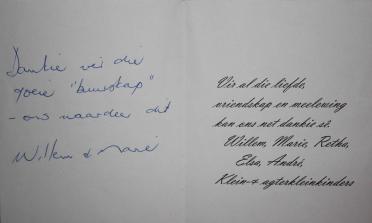 Dankie vir die
goeie "buurskap"
- ons waardeer dit
Willem & Marié
Vir al die liefde,
vriendskap en meelewing
kan ons net dankie sê.
Willem, Marie, Retha,
Elsa, André,
Klein- & agterkleinkinders